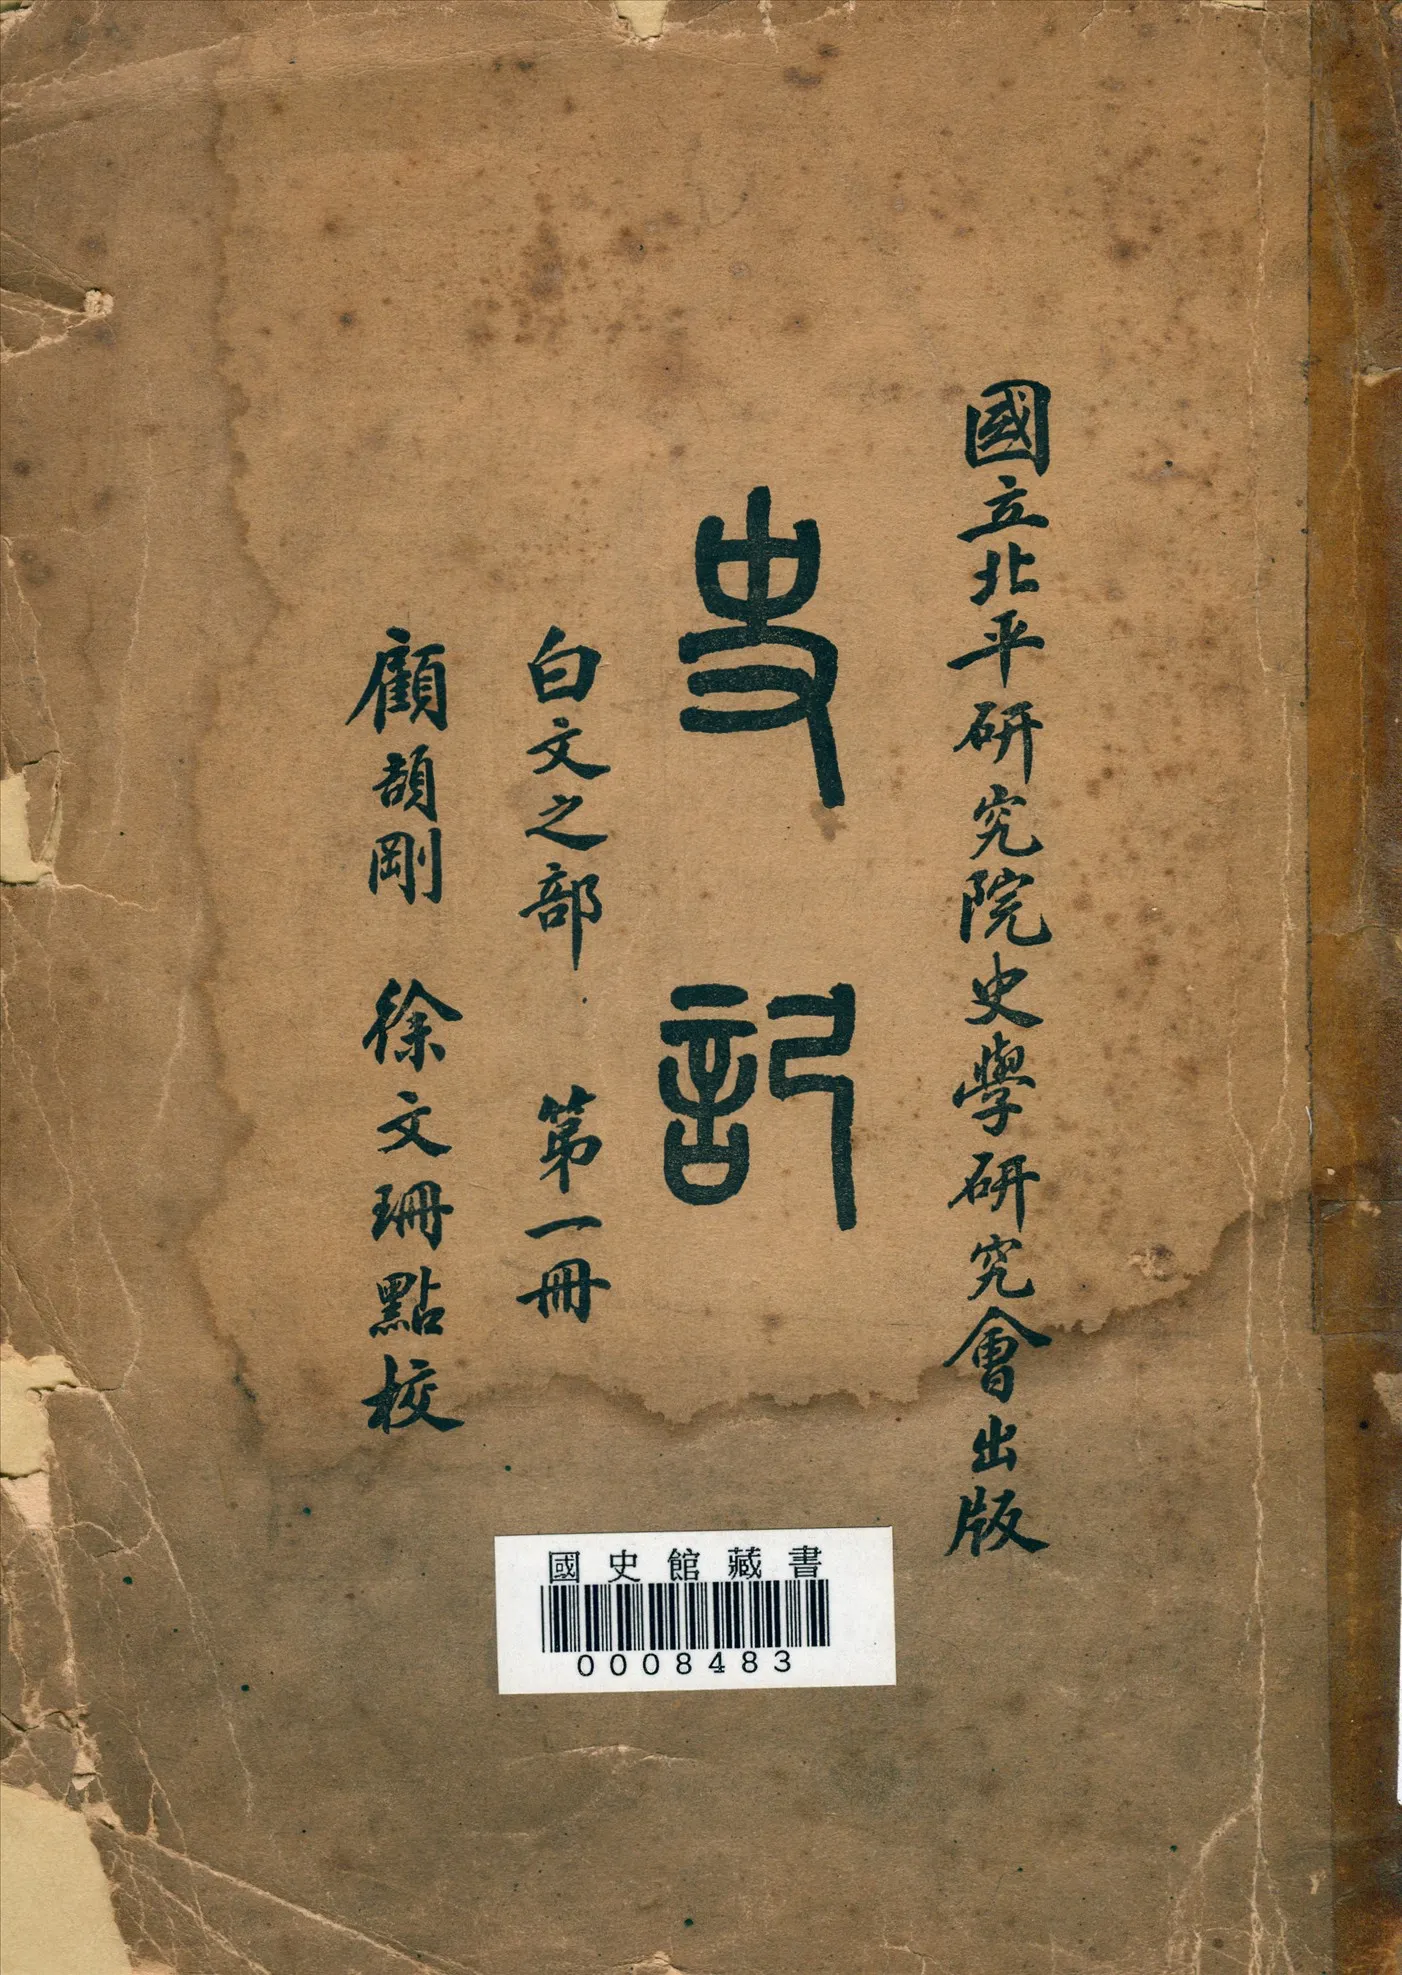 國立北平研究院史學研究會出版
史記
白文之部 第一冊
顧頡剛 徐文珊點校
國史館藏書
0008483